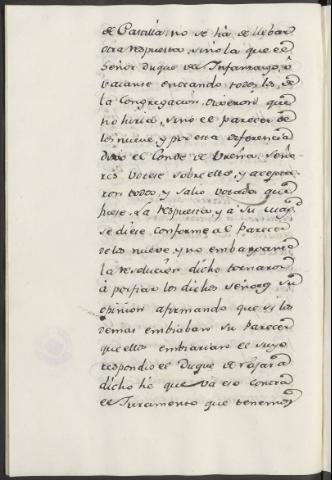 de Castilla: no se hà de llebar
otra respuesta, sino la que el
Señor Duque del Infantazgo, ò
vaianse entrando todos los de
la Congregacion, dixeron que
no hiria, sino el parecer de
los nueve, y por esta diferencia
dixo el Conde de Ureña, Seño-
res votese sobre ello, y acepta-
ron todos, y salio votado que
fuese la respuesta y à su Magd.
se diese conforme al Parecer
de los nueve, y no embargante
la resolucion dicha tornaron
à porfiar los dichos Señores su
opinion afirmando que si los
demas embiaban su Parecer
que ellos embiarian el suyo
respondio el Duque de Bejar
dicho hè que và eso contra
el Juramento que tenemos